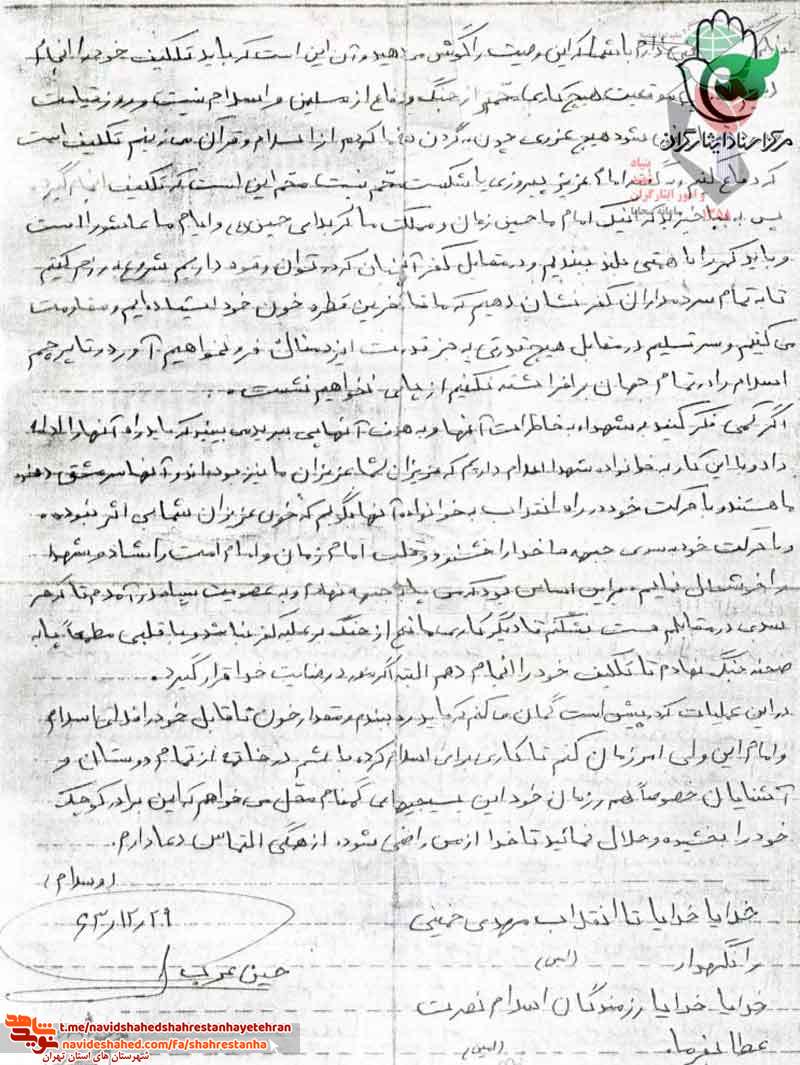 دارم با شما که این وصیت را گوش می‌دهید و آن این است که باید تکلیف خود را انجام
موقعیت هیچ کاری مهم‌تر از جنگ و دفاع از مسلمین و اسلام نیست و روز قیامت
شود هیچ عذری چون به گردن ما تکلیف است
مرکز اسناد ایثارگران
بنیاد
و امور ایثارگران
که دفاع کنیم امام عزیز پیروزی یا شکست مهم نیست مهم این است که تکلیف انجام گیرد
پس بپا خیزید که اینک امام ما حسین زمان و مملکت ما کربلای حسین و ایام ما عاشورا است
و باید کمر را با همتی بلند ببندیم و در مقابل کفر آنچنان که در توان و قوه داریم شروع به رزم کنیم
تا به تمام سردمداران کفر نشان دهیم که ما تا آخرین قطره خون خود ایستاده‌ایم و مقاومت
می کنیم و سر تسلیم در مقابل هیچ قدرتی به جز قدرت ایزد منان فرو نخواهیم آورد و تا پرچم
اسلام را در تمام جهان برافراشته نکنیم از پای نخواهیم نشست.
اگر کمی فکر کنید به شهداء به خاطرات آنها و به هدف آنها پی ببرید می بینید که باید راه آنها را ادامه
داد و با این کار به خانواده شهدا اعلام داریم که عزیزان شما عزیزان ما نیز بوده‌اند و آنها سرمشق دهنده
ما هستند و با حرکت خود در راه انقلاب به خانواده آنها بگوئیم که خون عزیزان شما بی اثر نبوده.
و با حرکت خود به سوی جبهه ها خدا را خشنود و قلب امام زمان و امام امت را شاد و شهدا
را خوشحال نمائیم. بر این اساس بود که من پا به جبهه نهادم و به عضویت سپاه در آمدم تا که هر
سدی در مقابلم هست بشکنم تا دیگر کاری مانع از جنگ بر علیه کفر نباشد و با قلبی مطمئن پا به
صحنه جنگ نهادم تا تکلیف خود را انجام دهم البته اگر مورد رضایت خدا قرار گیرد.
در این عملیات که در پیش است گمان می کنم که باید رد بدنم و مقدار خون ناقابل خود را فدای اسلام
و امام این ولی امر زمان کنم تا کاری برای اسلام کرده باشم در خاتمه از تمام دوستان و
آشنایان خصوصاً هم رزمان خود این بسیجیهای گمنام می خواهم که این برادر کوچک
خود را بخشیده و حلال نمائید تا خدا از من راضی شود. از همگی التماس دعا دارم.
(والسلام)
۶۳/۱۲/۲۹
حسین عرب
خدایا خدایا تا انقلاب مهدی خمینی
را نگهدار (آمین)
خدایا خدایا رزمندگان اسلام نصرت
عطا بفرما. (آمین)
نوید شاهد
t.me/navidshahedshahrestanhayetehran
navideshahed.com/fa/shahrestanha
شهرستان های استان تهران